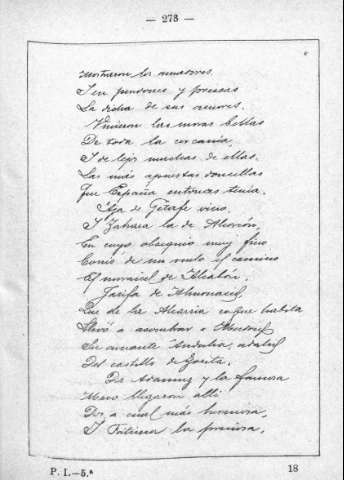 — 273 —
mostraron los amadores
I en pendones y preseas
La dicha de sus amores.
Vinieron las moras bellas
De toda la cercanía,
I de lejos muchas de ellas.
Las más apuestas doncellas
Que España entonces tenía.
Aja de Getafe vino,
I Zahara la de Alcorcón,
En cuyo obsequio muy fino
Corrió de un vuelo el camino
El moraicel de Alcabón.
Jarifa de Almonacid,
Que de la Alcarria en que habita
Llevó a asombrar a Madrid
Su amante Andalla, adalid
Del castillo de Zorita.
De Adamuz y la famosa
Meco llegaron allí
Dos, a cual más hermosa,
I Fátima la preciosa,
P. I.—5.ª 18